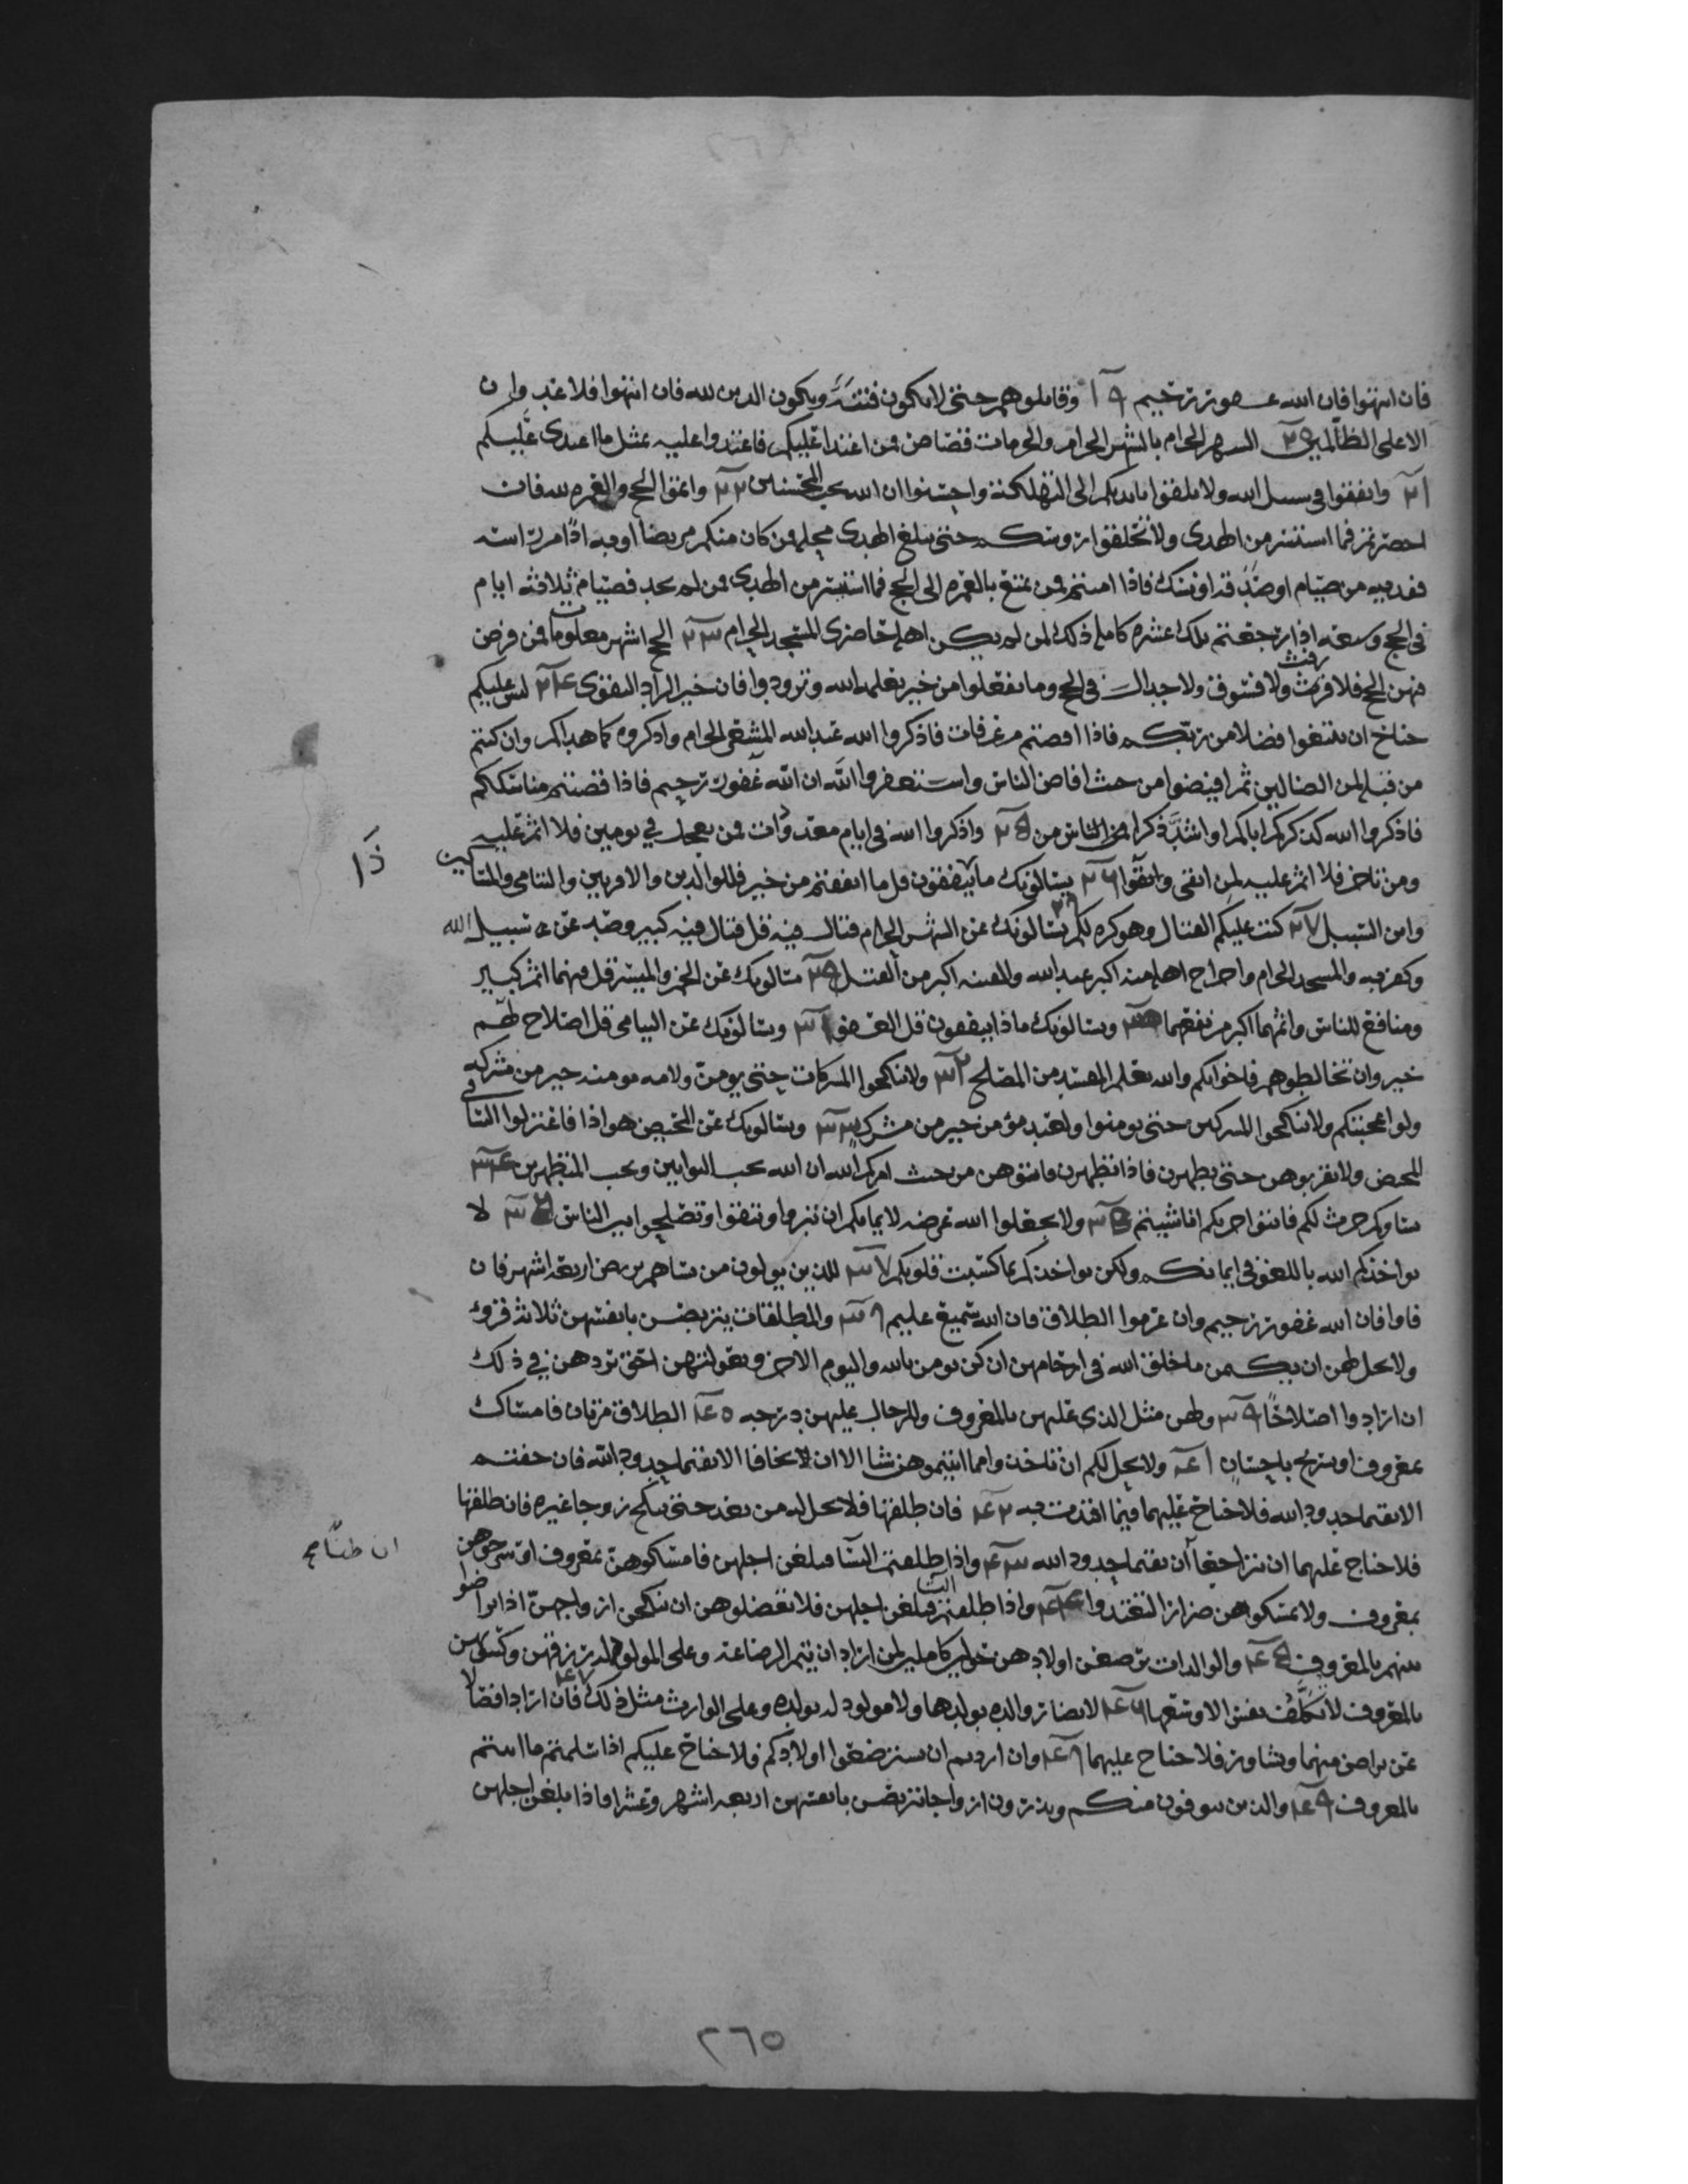 فان انتهوا فان الله غفور رحيم ١٩ وقاتلوهم حتى لا تكون فتنة ويكون الدين لله فان انتهوا فلا عدوان
الا على الظالمين ٢٥ الشهر الحرام بالشهر الحرام والحرمات قصاص فمن اعتدا عليكم فاعتدوا عليه بمثل ما اعتدى عليكم
٢١ وانفقوا في سبيل الله ولا تلقوا بايديكم الى التهلكة واحسنوا ان الله يحب المحسنين ٢٢ واتموا الحج والعمره لله فان
احصرتم فما استيسر من الهدى ولا تحلقوا روسكم حتى يبلغ الهدى محله فمن كان منكم مريضا او به اذًا من راسه
ففديه من صيام او صدقه او نسك فاذا امنتم فمن تمتع بالعمره الى الحج فما استيسر من الهدى فمن لم يجد فصيام ثلاثه ايام
في الحج وسبعه اذا رجعتم تلك عشره كامله ذلك لمن لم يكن اهله حاضرى المسجد الحرام ٢٣ الحج اشهر معلومات فمن فرض
فيهن الحج فلا رفث ولا فسوق ولا جدال في الحج وما تفعلوا من خير يعلمه الله وتزودوا فان خير الزاد التقوى ٢٤ ليس عليكم
جناح ان تبتغوا فضلا من ربكم فاذا افضتم من عرفات فاذكروا الله عند الله المشعر الحرام واذكروه كما هداكم وان كنتم
من قبله لمن الضالين ثم افيضوا من حيث افاض الناس واستغفروا الله ان الله غفور رحيم فاذا قضيتم مناسككم
فاذكروا الله كذكركم اباكم او اشدَّ ذكرا فمن الناس من ٢٥ واذكروا الله في ايام معدودات فمن تعجل في يومين فلا اثم عليه
ومن تاخر فلا اثم عليه لمن اتقى واتقوا ٢٦ يسالونك ما ينفقون قل ما انفقتم من خير فللوالدين والاقربين واليتامى والمساكين
ذَا
وابن السبيل ٢٧ كتب عليكم القتال وهو كره لكم ٢٨ يسالونك عن الشهر الحرام قتال فيه قل قتال فيه كبير وصد عن سبيل الله
وكفر به والمسجد الحرام واخراج اهله منه اكبر عند الله والفتنه اكبر من القتل ٢٩ يسالونك عن الخمر والميسر قل فيهما اثم كبير
ومنافع للناس واثمهما اكبر من نفعهما ويسالونك ماذا ينفقون قل العفو ٣١ ويسالونك عن اليتامى قل اصلاح لهم
خير وان تخالطوهم فاخوانكم والله يعلم المفسد من المصلح ٣٢ ولا تنكحوا المشركات حتى يومنّ ولامه مومنه خير من مشركه
ولو اعجبتكم ولا تنكحوا المشركين حتى يومنوا ولعبد مؤمن خير من مشرك ٣٣ ويسالونك عن المحيض هو اذا فاعتزلوا النسا في
المحيض ولا تقربوهن حتى يطهرن فاذا تطهرن فاتوهن من حيث امركم الله ان الله يحب التوابين ويحب المتطهرين ٣٤
نساوكم حرث لكم فاتوا حرثكم انا شيتم ٣٥ ولا تجعلوا الله عرضه لايمانكم ان تبروا وتتقوا وتصلحوا بين الناس ٣٦ لا
يواخذكم الله باللغو في ايمانكم ولكن يواخذكم بما كسبت قلوبكم ٣٧ للذين يولون من نسايهم تربص اربعه اشهر فان
فاوا فان الله غفور رحيم وان عزموا الطلاق فان الله سميع عليم ٣٨ والمطلقات يتربصن بانفسهن ثلاثه قروء
ولا يحل لهن ان يكتمن ما خلق الله في ارحامهن ان كن يومن بالله واليوم الاخر وبعولتهن احق بردهن في ذلك
ان ارادوا اصلاحًا ٣٩ ولهن مثل الذى عليهن بالمعروف وللرجال عليهن درجه ٤٥ الطلاق مرتان فامساك
بمعروف او تسريح باحسان ٤١ ولا يحل لكم ان تاخذوا مما اتيتموهن شيا الا ان يخافا الا يقيما حدود الله فان خفتم
الا يقيما حدود الله فلا جناح عليهما فيما افتدت به ٤٢ فان طلقها فلا تحل له من بعد حتى تنكح زوجا غيره فان طلقها
فلا جناح عليهما ان يتراجعا ان يقيما حدود الله ٤٣ واذا طلقتم النسا فبلغن اجلهن فامسكوهن بمعروف او سرحوهن
ان ظنّا صح
بمعروف ولا تمسكوهن ضرارا لتعتدوا ٤٤ واذا طلقتم النسا فبلغن اجلهن فلا تعضلوهن ان ينكحن ازواجهنّ اذا تراضوا
بينهم بالمعروف ٤٥ والوالدات يرضعن اولادهن حولين كاملين لمن اراد ان يتم الرضاعة وعلى المولود له رزقهن وكسوتهن
بالمعروف لا تكلَّف نفس الا وسعها ٤٦ لا تضار والده بولدها ولا مولود له بولده وعلى الوارث مثل ذلك ٤٧ فان ارادا فصالا
عن تراض منهما وتشاور فلا جناح عليهما ٤٨ وان اردتم ان تسترضعوا اولادكم فلا جناح عليكم اذا سلمتم ما اتيتم
بالمعروف ٤٩ والذين يتوفون منكم ويذرون ازواجا يتربصن بانفسهن اربعه اشهر وعشرا فاذا بلغن اجلهن
٢٦٥